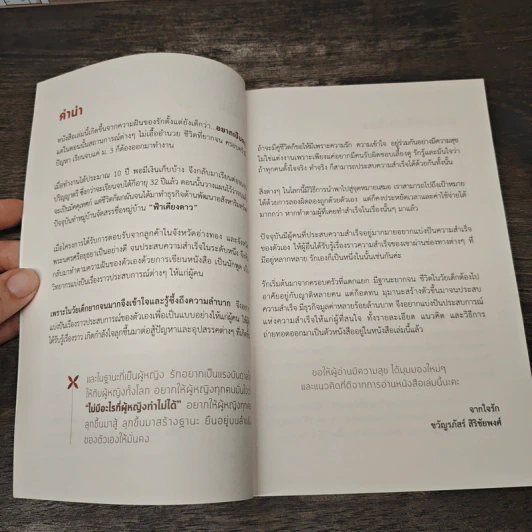 คำนำ
หนังสือเล่มนี้เกิดขึ้นจากความฝันของรักตั้งแต่ยังเด็กว่า...อยากเป็น
แต่ในตอนนั้นสถานการณ์ต่างๆ ไม่เอื้ออำนวย ชีวิตที่ยากจน
ปัญหา เรียนจบแค่ ม. 3 ก็ต้องออกมาทำงาน
เมื่อทำงานได้ประมาณ 10 ปี พอมีเงินเก็บบ้าง จึงกลับมาเรียน
ปริญญาตรี ซึ่งกว่าจะเรียนจบได้ก็อายุ 32 ปีแล้ว ตอนนั้นวางแผนไว้ว่า
จะเป็นมัคคุเทศก์ แต่ชีวิตก็ผกผันจนได้มาทำธุรกิจด้านพัฒนาอสังหาริมทรัพย์
ปัจจุบันทำหมู่บ้านจัดสรรชื่อหมู่บ้าน "ฟ้าเคียงดาว"
เมื่อโครงการได้รับการตอบรับจากลูกค้าในจังหวัดอ่างทอง และ
พระนครศรีอยุธยาเป็นอย่างดี จนประสบความสำเร็จในระดับหนึ่ง
กลับมาทำตามความฝันของตัวเองด้วยการเขียนหนังสือ เป็นนักพูด
วิทยากรแบ่งปันเรื่องราวประสบการณ์ต่างๆ ให้แก่ผู้คน
เพราะในวัยเด็กยากจนมากจึงเข้าใจและรู้ซึ้งถึงความลำบาก จึงอยาก
แบ่งปันเรื่องราวประสบการณ์ของตัวเองเพื่อเป็นแบบอย่างให้แก่ผู้คน
ได้รับรู้เรื่องราว เกิดกำลังใจลุกขึ้นมาต่อสู้ปัญหาและอุปสรรคต่างๆ
และในฐานะที่เป็นผู้หญิง รักอยากเป็นแรงบันดาลใจ
ให้กับผู้หญิงทั้งโลก อยากให้ผู้หญิงทุกคนมั่นใจว่า
"ไม่มีอะไรที่ผู้หญิงทำไม่ได้" อยากให้ผู้หญิงทุกคน
ลุกขึ้นมาสู้ ลุกขึ้นมาสร้างฐานะ ยืนอยู่บนลำแข้ง
ของตัวเองให้มั่นคง
ถ้าจะมีคู่ชีวิตก็ขอให้มีเพราะความรัก ความเข้าใจ อยู่ร่วมกันอย่างมีความสุข
ไม่ใช่แต่งงานเพราะเพียงแค่อยากมีคนรับผิดชอบเลี้ยงดู รักรู้และมั่นใจว่า
ถ้าทุกคนตั้งใจจริง ทำจริง ก็สามารถประสบความสำเร็จได้ด้วยกันทั้งนั้น
สิ่งต่างๆ ในโลกนี้มีวิธีการนำพาไปสู่จุดหมายเสมอ เราสามารถไปถึงเป้าหมาย
ได้ด้วยการลองผิดลองถูกด้วยตัวเอง แต่ก็คงประหยัดเวลาและค่าใช้จ่ายได้
มากกว่า หากทำตามผู้ที่เคยทำสำเร็จในเรื่องนั้นๆ มาแล้ว
ปัจจุบันมีผู้คนที่ประสบความสำเร็จอยู่มากมายอยากแบ่งปันความสำเร็จ
ของตัวเอง ให้ผู้อื่นได้รับรู้เรื่องราวความสำเร็จของเขาผ่านช่องทางต่างๆ ที่
มีอยู่หลากหลาย รักเองก็เป็นหนึ่งในนั้นเช่นกันค่ะ
รักเริ่มต้นมาจากครอบครัวที่แตกแยก มีฐานะยากจน ชีวิตในวัยเด็กต้องไป
อาศัยอยู่กับญาติหลายคน แต่ก็อดทน มุมานะสร้างตัวขึ้นมาจนประสบ
ความสำเร็จ มีธุรกิจมูลค่าหลายร้อยล้านบาท จึงอยากแบ่งปันประสบการณ์
แห่งความสำเร็จให้แก่ผู้ที่สนใจ ทั้งรายละเอียด แนวคิด และวิธีการ
ถ่ายทอดออกมาเป็นตัวหนังสืออยู่ในหนังสือเล่มนี้แล้วค่ะ
ขอให้ผู้อ่านมีความสุข ได้มุมมองใหม่ๆ
และแนวคิดที่ดีจากการอ่านหนังสือเล่มนี้นะคะ
จากใจรัก
ขวัญรภัสร์ สิริชัยพงศ์